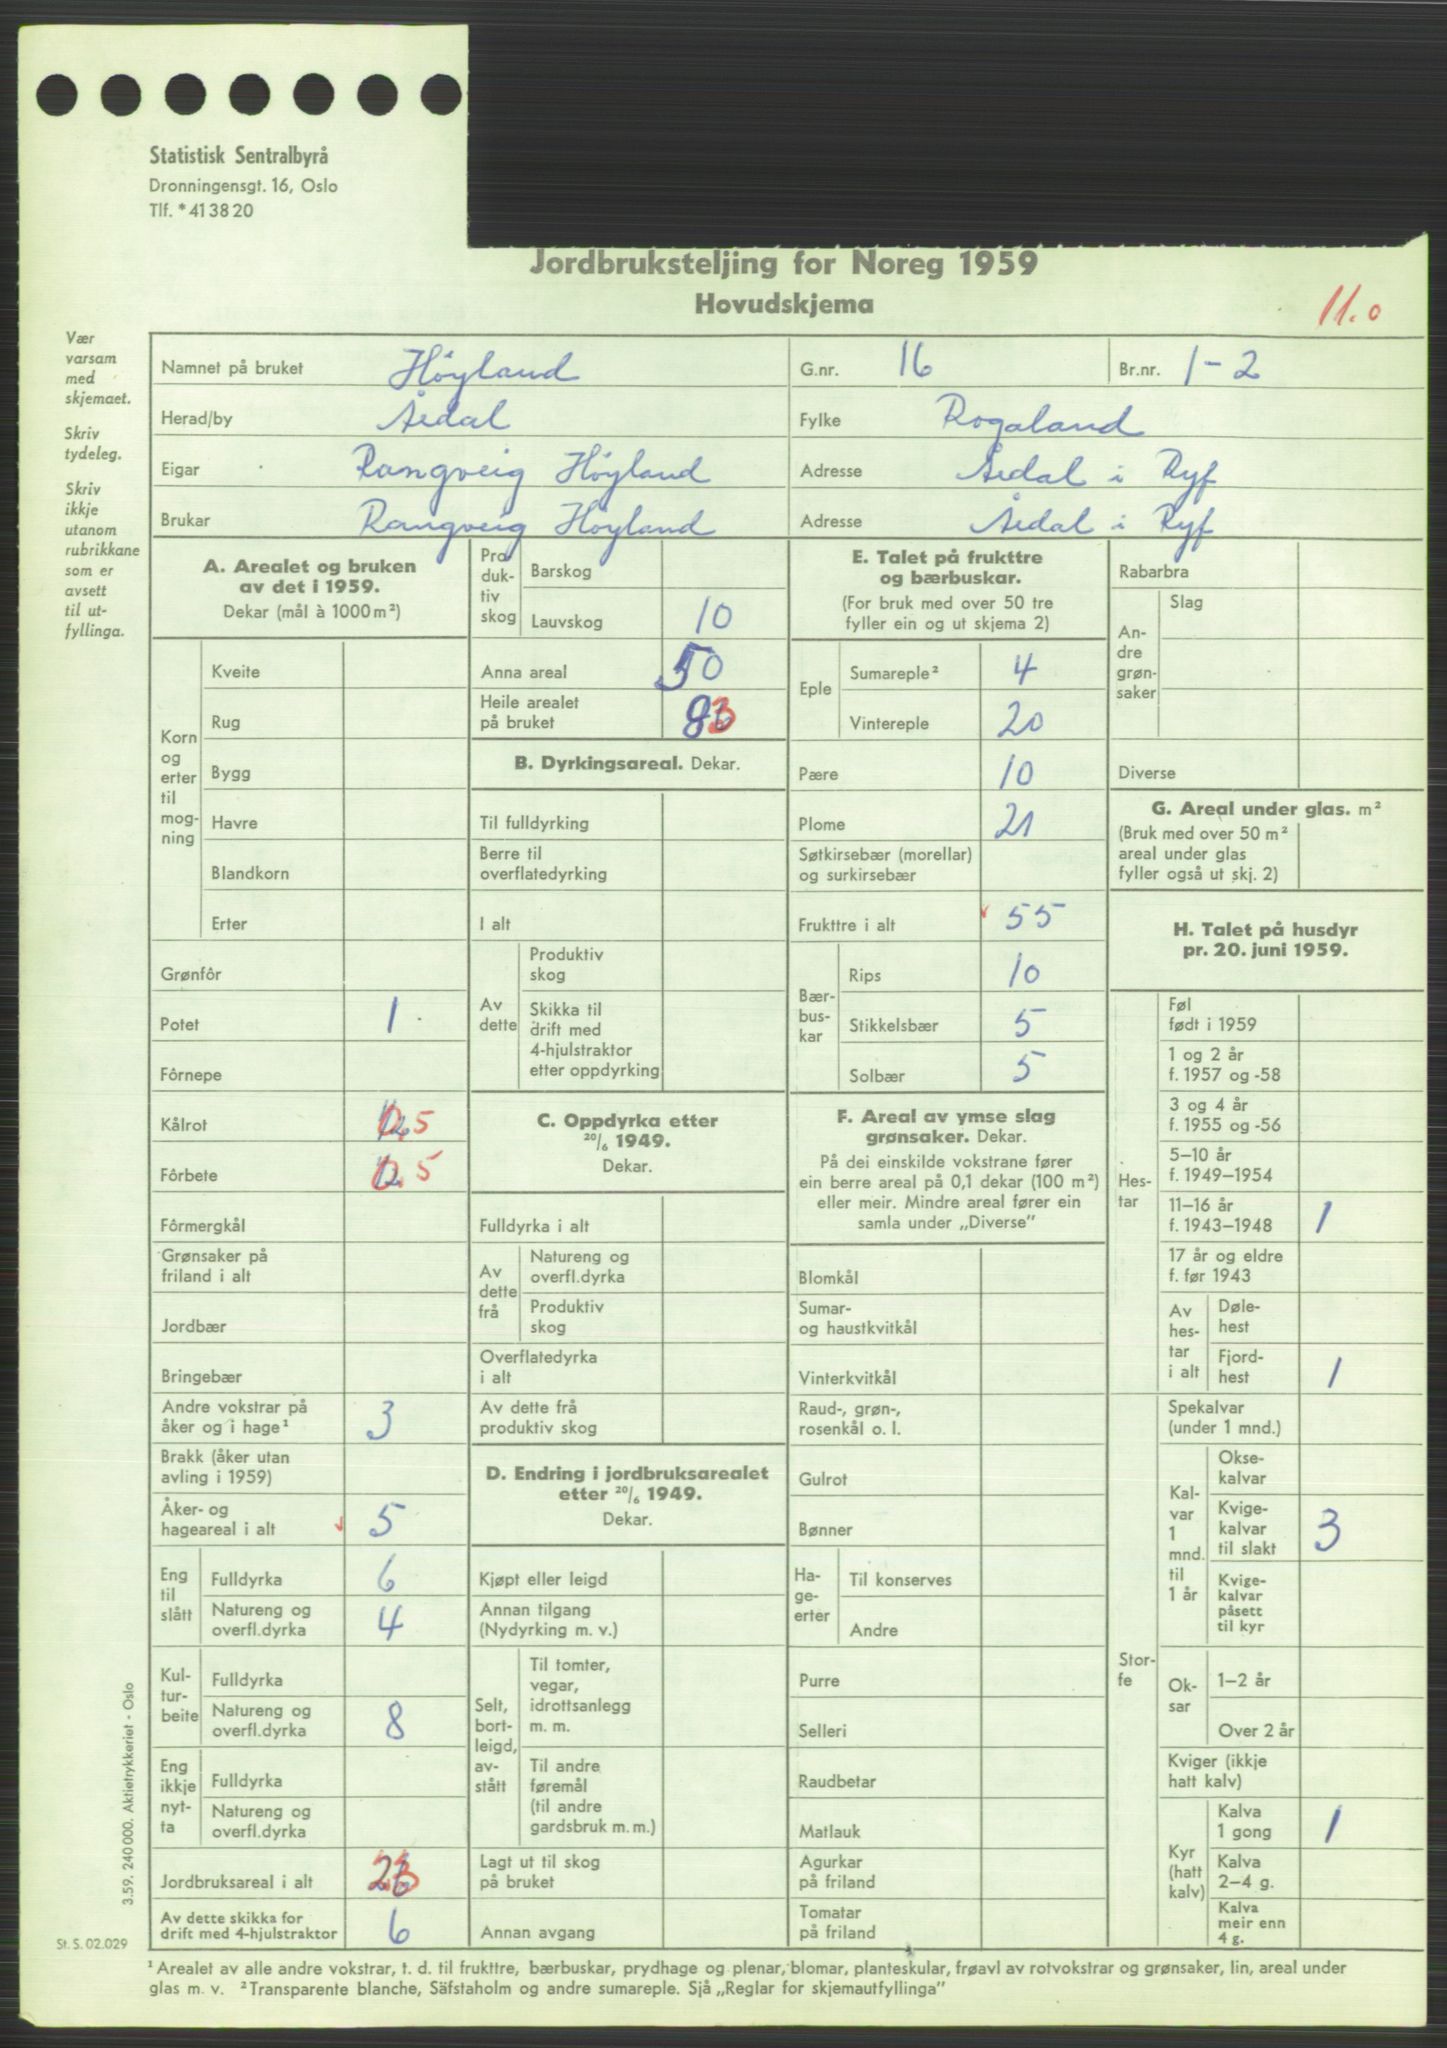 Statistisk Sentralbyrå
Dronningensgt. 16, Oslo
Tlf. *41 38 20
Jordbruksteljing for Noreg 1959
Hovudskjema
11.0
Vær
varsam
med
skjemaet.
Skriv
tydeleg.
Skriv
ikkje
utanom
rubrikkane
som er
avsett
til ut-
fyllinga.
Namnet på bruket Höyland G.nr. 16 Br.nr. 1-2
Herad/by Årdal Fylke Rogaland
Eigar Rangveig Höyland Adresse Årdal i Ryf
Brukar Rangveig Höyland Adresse Årdal i Ryf
A. Arealet og bruken
av det i 1959.
Dekar (mål à 1000 m²)
Korn
og
erter
til
mog-
ning
Kveite
Rug
Bygg
Havre
Blandkorn
Erter
Grønfôr
Potet 1
Fôrnepe
Kålrot 0,5
Fôrbete 0,5
Fôrmergkål
Grønsaker på
friland i alt
Jordbær
Bringebær
Andre vokstrar på
åker og i hage¹ 3
Brakk (åker utan
avling i 1959)
Åker- og
hageareal i alt 5
Eng
til
slått
Fulldyrka 6
Natureng og
overfl.dyrka 4
Kul-
tur-
beite
Fulldyrka
Natureng og
overfl.dyrka 8
Eng
ikkje
nyt-
ta
Fulldyrka
Natureng og
overfl.dyrka
Jordbruksareal i alt 23
Av dette skikka for
drift med 4-hjulstraktor 6
Pro
duk-
tiv
skog
Barskog
Lauvskog 10
Anna areal 50
Heile arealet
på bruket 83
B. Dyrkingsareal. Dekar.
Til fulldyrking
Berre til
overflatedyrking
I alt
Av
dette
Produktiv
skog
Skikka til
drift med
4-hjulstraktor
etter oppdyrking
C. Oppdyrka etter
20/6 1949.
Dekar.
Fulldyrka i alt
Av
dette
frå
Natureng og
overfl.dyrka
Produktiv
skog
Overflatedyrka
i alt
Av dette frå
produktiv skog
D. Endring i jordbruksarealet
etter 20/6 1949.
Dekar.
Kjøpt eller leigd
Annan tilgang
(Nydyrking m. v.)
Selt,
bort-
leigd,
av-
stått
Til tomter,
vegar,
idrottsanlegg
m. m.
Til andre
føremål
(til andre
gardsbruk m. m.)
Lagt ut til skog
på bruket
Annan avgang
E. Talet på frukttre
og bærbuskar.
(For bruk med over 50 tre
fyller ein og ut skjema 2)
Eple
Sumareple² 4
Vintereple 20
Pære 10
Plome 21
Søtkirsebær (morellar)
og surkirsebær
Frukttre i alt 55
Bær-
bus-
kar
Rips 10
Stikkelsbær 5
Solbær 5
F. Areal av ymse slag
grønsaker. Dekar.
På dei einskilde vokstrane fører
ein berre areal på 0,1 dekar (100 m²)
eller meir. Mindre areal fører ein
samla under „Diverse”
Blomkål
Sumar-
og haustkvitkål
Vinterkvitkål
Raud-, grøn-,
rosenkål o. l.
Gulrot
Bønner
Ha-
ge-
erter
Til konserves
Andre
Purre
Selleri
Raudbetar
Matlauk
Agurkar
på friland
Tomatar
på friland
Rabarbra
An-
dre
grøn-
saker
Slag
Diverse
G. Areal under glas. m²
(Bruk med over 50 m²
areal under glas
fyller også ut skj. 2)
H. Talet på husdyr
pr. 20. juni 1959.
Hes-
tar
Føl
født i 1959
1 og 2 år
f. 1957 og -58
3 og 4 år
f. 1955 og -56
5-10 år
f. 1949-1954
11-16 år
f. 1943-1948 1
17 år og eldre
f. før 1943
Av
hes-
tar
i alt
Døle-
hest
Fjord-
hest 1
Stor-
fe
Spekalvar
(under 1 mnd.)
Kal-
var
1
mnd.
til
1 år
Okse-
kalvar
Kvige-
kalvar
til slakt 3
Kvige-
kalvar
påsett
til kyr
Ok-
sar
1-2 år
Over 2 år
Kviger (ikkje
hatt kalv)
Kyr
(hatt
kalv)
Kalva
1 gong 1
Kalva
2-4 g.
Kalva
meir enn
4 g.
3.59. 240 000. Aktietrykkeriet - Oslo
St. S. 02.029
¹ Arealet av alle andre vokstrar, t. d. til frukttre, bærbuskar, prydhage og plenar, blomar, planteskular, frøavl av rotvokstrar og grønsaker, lin, areal under
glas m. v. ² Transparente blanche, Säfstaholm og andre sumareple. Sjå „Reglar for skjemautfyllinga”